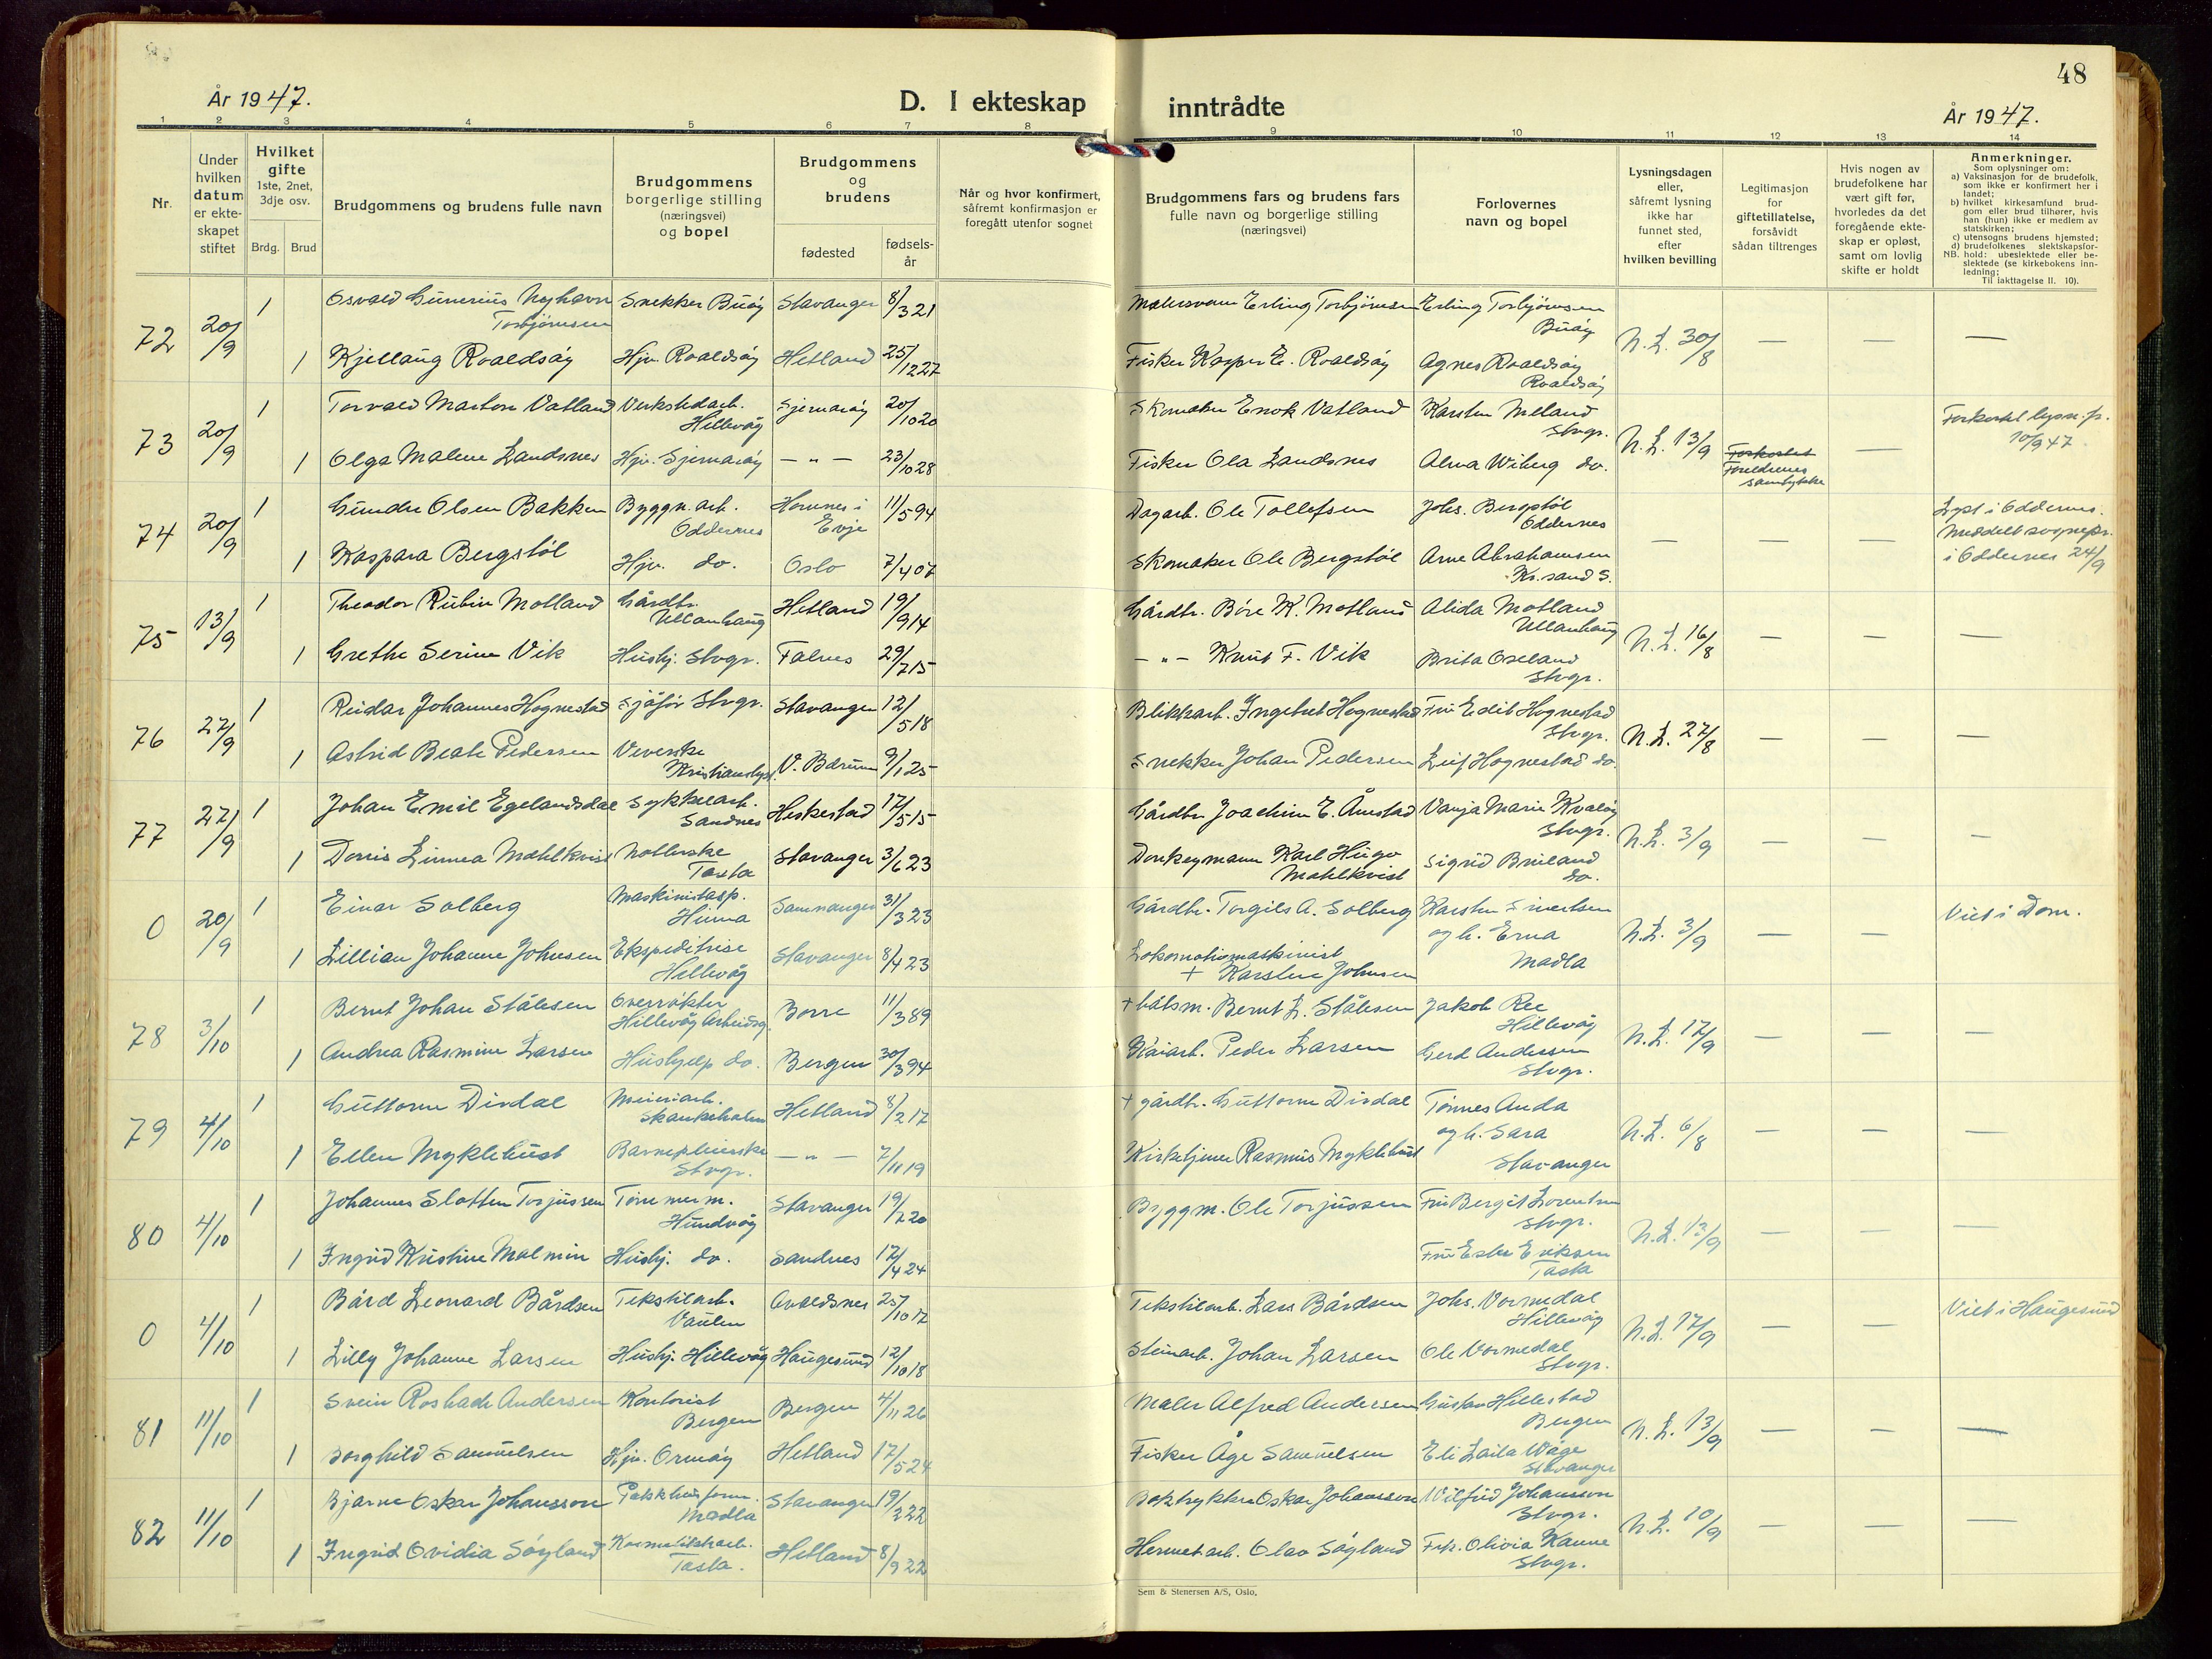 48
År 1947.
D. I ekteskap inntrådte
År 1947.
1 2 3 4 5 6 7 8 9 10 11 12 13 14
Nr.
Under hvilken datum er ekteskapet stiftet
Hvilket gifte
1ste, 2net, 3dje osv.
Brdg. Brud
Brudgommens og brudens fulle navn
Brudgommens borgerlige stilling (næringsvei) og bopel
Brudgommens og brudens
fødested
fødselsår
Når og hvor konfirmert, såfremt konfirmasjon er foregått utenfor sognet
Brudgommens fars og brudens fars fulle navn og borgerlige stilling (næringsvei)
Forlovernes navn og bopel
Lysningsdagen eller, såfremt lysning ikke har funnet sted, efter hvilken bevilling
Legitimasjon for giftetillatelse, forsåvidt sådan tiltrenges
Hvis nogen av brudefolkene har vært gift før, hvorledes da det foregående ekteskap er opløst, samt om lovlig skifte er holdt
Anmerkninger.
Som oplysninger om:
a) Vaksinasjon for de brudefolk, som ikke er konfirmert her i landet;
b) hvilket kirkesamfund brudgom eller brud tilhører, hvis han (hun) ikke er medlem av statskirken;
c) utensogns brudens hjemsted;
d) brudefolkenes slektskapsforhold: ubeslektede eller beslektede (se kirkebokens innledning;
NB.
Til iakttagelse II. 10).
72 20/9 1 Osvald Gunerius Nyhavn Torbjørnsen Snekker Buøy Stavanger 8/3 21 Malersvenn Erling Torbjørnsen Erling Torbjørnsen Buøy N.L. 30/8 — — —
1 Kjellaug Roaldsøy Hjv. Roaldsøy Hetland 25/12 27 Fisker Kasper E. Roaldsøy Agnes Roaldsøy Roaldsøy
73 20/9 1 Torvald Marton Vatland Verkstedarb. Hillevåg Sjernarøy 20/10 20 Skomaker Enok Vatland Karsten Meland Stvgr. N.L. 13/9 Foreldrenes samtykke — Forkortet lysn. fr. 10/9 47
1 Olga Malene Landsnes Hjv. Sjernarøy — " — 23/10 28 Fisker Ola Landsnes Alma Wiberg do.
74 20/9 1 Gunder Olsen Bakken Byggn. arb. Oddernes Hornnes i Evje 11/5 94 Dagarb. Ole Tollefsen Johs. Bergstøl Oddernes — — — Lyst i Oddernes. Meddelt sognepr. i Oddernes 24/9
1 Kaspara Bergstøl Hjv. do. Oslo 7/4 07 Skomaker Ole Bergstøl Arne Abrahamsen Kr.sand S.
75 13/9 1 Theodor Rubin Motland Gårdbr. Ullanhaug Hetland 19/9 14 Gårdbr. Bore K. Motland Alida Motland Ullanhaug N.L. 16/8 — — —
1 Grethe Serine Vik Hushj. Stvgr. Falnes 29/7 15 — " — Knut F. Vik Brita Oseland Stvgr.
76 27/9 1 Reidar Johannes Hognestad Sjåfør Stvgr. Stavanger 12/5 18 Blikkarb. Ingebret Hognestad Fru Edit Hognestad Stvgr. N.L. 27/8 — — —
1 Astrid Beate Pedersen Veverske Kristianslyst V. Bærum 9/1 25 Snekker Johan Pedersen Leif Hognestad do.
77 27/9 1 Johan Emil Egelandsdal Sykkelarb. Sandnes Heskestad 17/5 15 Gårdbr. Joachim E. Åmstad Vanja Marie Kvaløy Stvgr. N.L. 3/9 — — —
1 Dorris Linnea Mahlkvist Notterske Tasta Stavanger 3/6 23 Donkeymann Karl Hugo Mahlkvist Sigrid Brueland do.
0 20/9 1 Einar Solberg Maskinistasp. Hinna Samnanger 31/3 23 Gårdbr. Torgils A. Solberg Karsten Sivertsen og h. Erna Madla N.L. 3/9 — — Viet i Dom.
1 Lillian Johanne Johnsen Ekspeditrise Hillevåg Stavanger 8/4 23 Lokomotivmaskinist + Karsten Johnsen
78 3/10 1 Bernt Johan Stålesen Overrøkter Hillevåg Arbeidsg. Borre 11/3 89 + båtsm. Bernt L. Stålesen Jakob Ree Hillevåg N.L. 17/9 — — —
1 Andrea Rasmine Larsen Hushjelp do. Bergen 30/3 94 Kaiarb. Peder Larsen Gerd Andersen Stvgr.
79 4/10 1 Guttorm Dirdal Meieriarb. Skankeholm Hetland 8/2 17 + gårdbr. Guttorm Dirdal Tønnes Anda og h. Sara Stavanger N.L. 6/8 — — —
1 Ellen Myklebust Barnepleierske Stvgr. — " — 7/11 19 Kirketjener Rasmus Myklebust
80 4/10 1 Johannes Slotten Torjussen Tømmerm. Hundvåg Stavanger 19/7 20 Byggm. Ole Torjussen Fru Bergit Lorentsen Stvgr. N.L. 13/9 — — —
1 Ingrid Kristine Malmin Hushj. do. Sandnes 17/4 24 Fru Ester Eriksen Tasta
0 4/10 1 Bård Leonard Bårdsen Tekstilarb. Vaulen Avaldsnes 25/10 17 Tekstilarb. Lars Bårdsen Johs. Vormedal Hillevåg N.L. 17/9 — — Viet i Haugesund
1 Lilly Johanne Larsen Hushj. Hillevåg Haugesund 12/10 18 Steinarb. Johan Larsen Ole Vormedal Stvgr.
81 11/10 1 Svein Rosbach Andersen Kontorist Bergen Bergen 4/11 26 Maler Alfred Andersen Gustav Hillestad Bergen N.L. 13/9 — — —
1 Borghild Samuelsen Hjv. Ormøy Hetland 17/5 24 Fisker Åge Samuelsen Eli Laila Våge Stavanger
82 11/10 1 Bjarne Oskar Johansson Pakkhusform. Madla Stavanger 19/3 22 Boktrykker Oskar Johansson Wilfrid Johansson Stvgr. N.L. 10/9 — — —
1 Ingrid Ovidia Søyland Kosmetikkarb. Tasta. Hetland 8/9 22 Hermetarb. Olav Søyland Frk. Olivia Kanne Stvgr.
Sem & Stenersen A/S, Oslo.